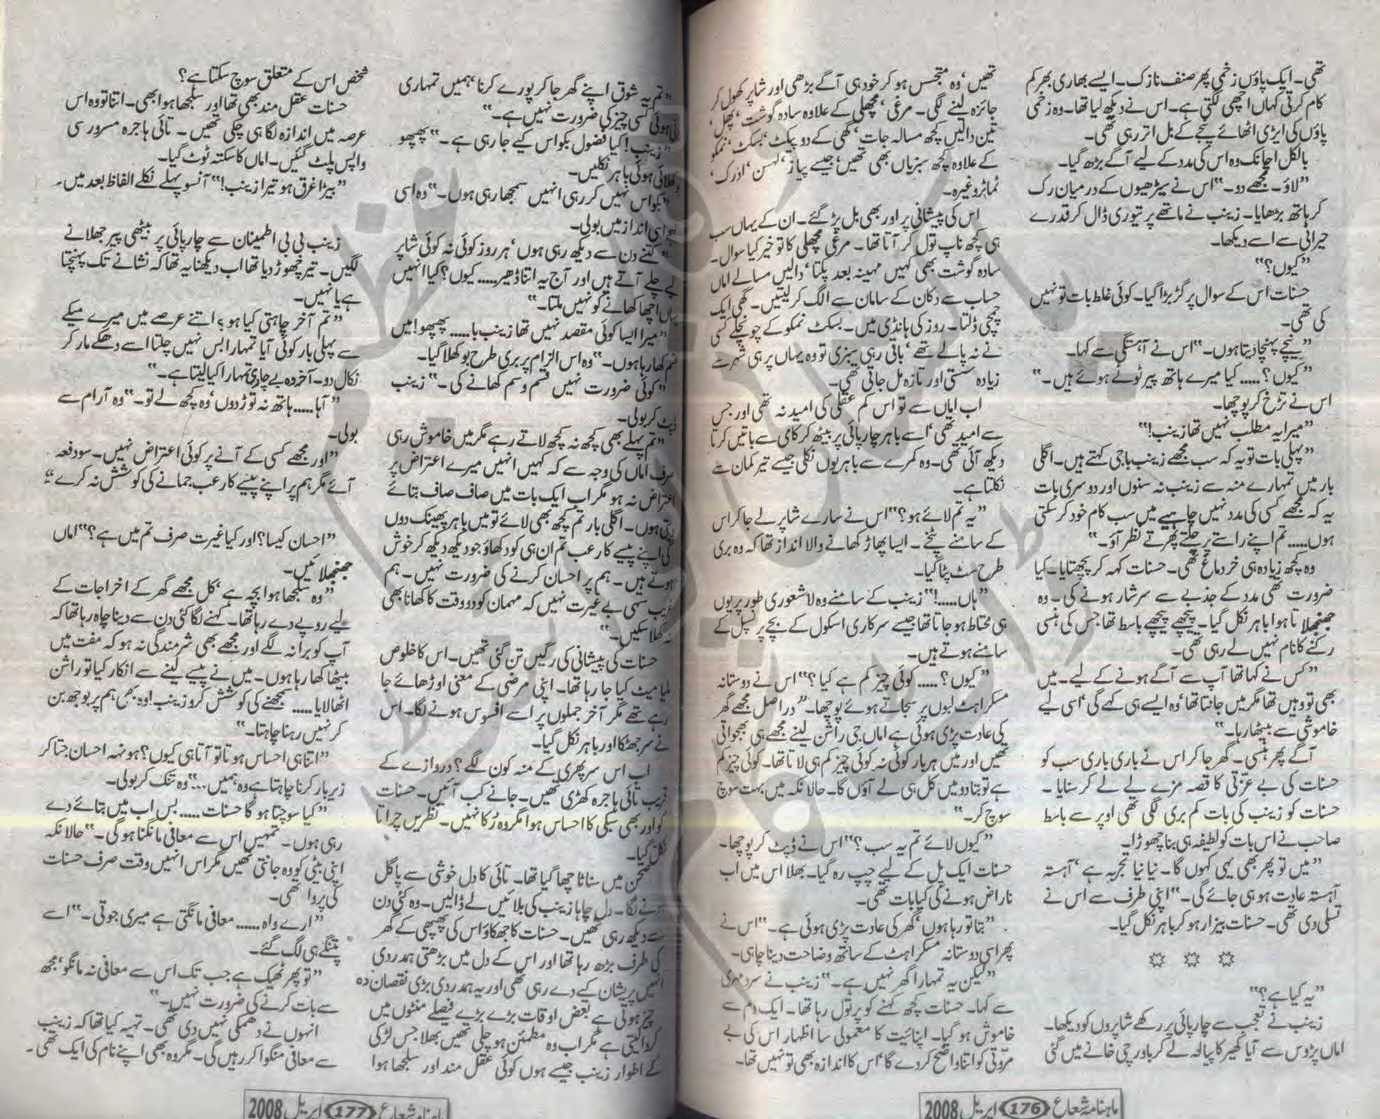 تھی۔ ایک پاؤں زخمی پھر صنف نازک۔ ایسے بھاری بھرکم
کام کرتی کہاں اچھی لگتی ہے۔ اس نے دیکھ لیا تھا۔ وہ زخمی
پاؤں کی ایڑی اٹھائے پنجے کے بل اتر رہی تھی۔
بالکل اچانک وہ اس کی مدد کے لیے آگے بڑھ گیا۔
"لاؤ۔ مجھے دو۔" اس نے سیڑھیوں کے درمیان رک
کر ہاتھ بڑھایا۔ زینب نے ماتھے پر تیوری ڈال کر قدرے
حیرانی سے اسے دیکھا۔
"کیوں؟"
حسنات اس کے سوال پر گڑبڑا گیا۔ کوئی غلط بات تو نہیں
کی تھی۔
"نیچے پہنچا دیتا ہوں۔" اس نے آہستگی سے کہا۔
"کیوں؟..... کیا میرے ہاتھ پیر ٹوٹے ہوئے ہیں۔"
اس نے تڑخ کر پوچھا۔
"میرا یہ مطلب نہیں تھا زینب!"
"پہلی بات تو یہ کہ سب مجھے زینب باجی کہتے ہیں۔ اگلی
بار میں تمہارے منہ سے زینب نہ سنوں اور دوسری بات
یہ کہ مجھے کسی کی مدد نہیں چاہیے میں سب کام خود کر سکتی
ہوں..... تم اپنے راستے پر چلتے پھرتے نظر آؤ۔"
وہ کچھ زیادہ ہی خر دماغ تھی۔ حسنات کہہ کر پچھتایا۔ کیا
ضرورت تھی مدد کے جذبے سے سرشار ہونے کی۔ وہ
جھنجھلاتا ہوا باہر نکل گیا۔ پیچھے پیچھے باسط تھا جس کی ہنسی
رکنے کا نام نہیں لے رہی تھی۔
"کس نے کہا تھا آپ سے آگے ہونے کے لیے۔ میں
بھی تو وہیں تھا مگر میں جانتا تھا، وہ ایسے ہی کہے گی، اسی لیے
خاموشی سے بیٹھا رہا۔"
آگے پھر ہنسی۔ گھر جا کر اس نے باری باری سب کو
حسنات کی بے عزتی کا قصہ مزے لے لے کر سنایا۔
حسنات کو زینب کی بات کم بری لگی تھی اوپر سے باسط
صاحب نے اس بات کو لطیفہ ہی بنا چھوڑا۔
"میں تو پھر بھی یہی کہوں گا۔ نیا نیا تجربہ ہے، آہستہ
آہستہ عادت ہو ہی جائے گی۔" اپنی طرف سے اس نے
تسلی دی تھی۔ حسنات بیزار ہو کر باہر نکل گیا۔
☼ ☼ ☼
"یہ کیا ہے؟"
زینب نے تعجب سے چارپائی پر رکھے شاپروں کو دیکھا۔
اماں پڑوس سے آیا کھیر کا پیالہ لے کر باورچی خانے میں گئی
تھیں، وہ متجسس ہو کر خود ہی آگے بڑھی اور شاپر کھول کر
جائزہ لینے لگی۔ مرغی، مچھلی کے علاوہ سادہ گوشت، پھل،
تین دالیں کچھ مسالہ جات، گھی کے دو پیکٹ، بسکٹ، نمکو
کے علاوہ کچھ سبزیاں بھی تھیں، جیسے پیاز، لہسن، ادرک،
ٹماٹر وغیرہ۔
اس کی پیشانی پر اور بھی بل پڑ گئے۔ ان کے یہاں سب
ہی کچھ ناپ تول کر آتا تھا۔ مرغی مچھلی کا تو خیر کیا سوال۔
سادہ گوشت بھی کہیں مہینہ بعد پکتا، دالیں مسالے اماں
حساب سے دکان کے سامان سے الگ کر لیتیں۔ گھی ایک
چمچی ڈلتا۔ روز کی ہانڈی میں۔ بسکٹ نمکو کے چونچلے کسی
نے نہ پالے تھے، باقی رہی سبزی تو وہ یہاں پر ہی شہر سے
زیادہ سستی اور تازہ مل جاتی تھی۔
اب اماں سے تو اس کم عقلی کی امید نہ تھی اور جس
سے امید تھی، اسے باہر چارپائی پر بیٹھ کر کامی سے باتیں کرتا
دیکھ آئی تھی۔ وہ کمرے سے باہر یوں نکلی جیسے تیر کمان سے
نکلتا ہے۔
"یہ تم لائے ہو؟" اس نے سارے شاپر لے جا کر اس
کے سامنے پٹخے۔ ایسا پھاڑ کھانے والا انداز تھا کہ وہ بری
طرح سٹ پٹا گیا۔
"ہاں.....!" زینب کے سامنے وہ لاشعوری طور پر یوں
ہی محتاط ہو جاتا تھا جیسے سرکاری اسکول کے بچے پرنسپل کے
سامنے ہوتے ہیں۔
"کیوں؟..... کوئی چیز کم ہے کیا؟" اس نے دوستانہ
مسکراہٹ لبوں پر سجاتے ہوئے پوچھا۔ "دراصل مجھے گھر
کی عادت پڑی ہوئی ہے اماں جی راشن لینے مجھے ہی بھجواتی
تھیں اور میں ہر بار کوئی نہ کوئی چیز کم ہی لاتا تھا۔ کوئی چیز کم
ہے تو بتا دو میں کل ہی لے آؤں گا۔ حالانکہ میں بہت سوچ
سوچ کر۔"
"کیوں لائے تم یہ سب؟" اس نے ڈپٹ کر پوچھا۔
حسنات ایک پل کے لیے چپ رہ گیا۔ بھلا اس میں اب
ناراض ہونے کی کیا بات تھی۔
"بتا تو رہا ہوں، گھر کی عادت پڑی ہوئی ہے۔" اس نے
پھر اسی دوستانہ مسکراہٹ کے ساتھ وضاحت دینا چاہی۔
"لیکن یہ تمہارا گھر نہیں ہے۔" زینب نے سرد مہری
سے کہا۔ حسنات کچھ کہنے کو پر تول رہا تھا۔ ایک دم سے
خاموش ہو گیا۔ اپنائیت کا معمولی سا اظہار اس کی بے
مروتی کو اتنا واضح کر دے گا، اس کا اندازہ بھی تو نہیں تھا۔
ماہنامہ شعاع 176 اپریل 2008
"تم یہ شوق اپنے گھر جا کر پورے کرنا، ہمیں تمہاری
لائی ہوئی کسی چیز کی ضرورت نہیں ہے۔"
"زینب! کیا فضول بکواس کیے جا رہی ہے۔" پھپھو
ہوئی باہر نکلیں۔
"بکواس نہیں کر رہی انہیں سمجھا رہی ہوں۔" وہ اسی
انداز میں بولی۔
"کتنے دن سے دیکھ رہی ہوں، ہر روز کوئی نہ کوئی شاپر
لیے چلے آتے ہیں اور آج یہ اتنا ڈھیر..... کیوں؟ کیا انہیں
یہاں اچھا کھانے کو نہیں ملتا۔"
"میرا ایسا کوئی مقصد نہیں تھا زینب با..... پھپھو! میں
قسم کھا رہا ہوں۔" وہ اس الزام پر بری طرح بوکھلا گیا۔
"کوئی ضرورت نہیں قسم وسم کھانے کی۔" زینب
ڈپٹ کر بولی۔
"تم پہلے بھی کچھ نہ کچھ لاتے رہے مگر میں خاموش رہی
صرف اماں کی وجہ سے کہ کہیں انہیں میرے اعتراض پر
اعتراض نہ ہو مگر اب ایک بات میں صاف صاف بتائے
دیتی ہوں۔ اگلی بار تم کچھ بھی لائے تو میں باہر پھینک دوں
گی اپنے پیسے کا رعب تم ان ہی کو دکھاؤ جو دیکھ دیکھ کر خوش
ہوتے ہیں۔ ہم پر احسان کرنے کی ضرورت نہیں۔ ہم
غریب سہی بے غیرت نہیں کہ مہمان کو دو وقت کا کھانا بھی
نہ کھلا سکیں۔"
حسنات کی پیشانی کی رگیں تن گئی تھیں۔ اس کا خلوص
ملیامیٹ کیا جا رہا تھا۔ اپنی مرضی کے معنی اوڑھائے جا
رہے تھے مگر آخر جملوں پر اسے افسوس ہونے لگا۔ اس
نے سر جھٹکا اور باہر نکل گیا۔
اب اس سر پھری کے منہ کون لگے؟ دروازے کے
قریب تائی ہاجرہ کھڑی تھیں۔ جانے کب آئیں۔ حسنات
کو اور بھی سبکی کا احساس ہوا مگر وہ رکا نہیں۔ نظریں چراتا
نکل گیا۔
صحن میں سناٹا چھا گیا تھا۔ تائی کا دل خوشی سے پاگل
ہونے لگا۔ دل چاہا زینب کی بلائیں لے ڈالیں۔ وہ کئی دن
سے دیکھ رہی تھیں۔ حسنات کا جھکاؤ اس کی پھپھی کے گھر
کی طرف بڑھ رہا تھا اور اس کے دل میں بڑھتی ہمدردی
انہیں پریشان کیے دے رہی تھی اور یہ ہمدردی بڑی نقصان دہ
چیز ہوتی ہے بعض اوقات بڑے بڑے فیصلے منٹوں میں
کروا لیتی ہے مگر اب وہ مطمئن ہو چلی تھیں بھلا جس لڑکی
کے اطوار زینب جیسے ہوں کوئی عقل مند اور سلجھا ہوا
شخص اس کے متعلق سوچ سکتا ہے؟
حسنات عقل مند بھی تھا اور سلجھا ہوا بھی۔ اتنا تو وہ اس
عرصہ میں اندازہ لگا ہی چکی تھیں۔ تائی ہاجرہ مسرور سی
واپس پلٹ گئیں۔ اماں کا سکتہ ٹوٹ گیا۔
"بیڑا غرق ہو تیرا زینب!" آنسو پہلے نکلے الفاظ بعد میں۔
زینب بی بی اطمینان سے چارپائی پر بیٹھی پیر جھلانے
لگیں۔ تیر چھوڑ دیا تھا اب دیکھنا یہ تھا کہ نشانے تک پہنچتا
ہے یا نہیں۔
"تم آخر چاہتی کیا ہو؟ اتنے عرصے میں میرے میکے
سے پہلی بار کوئی آیا تمہارا بس نہیں چلتا اسے دھکے مار کر
نکال دو۔ آخر وہ بے چارہ تمہارا کیا لیتا ہے۔"
"آہا..... ہاتھ نہ توڑ دوں، وہ کچھ لے تو۔" وہ آرام سے
بولی۔
"اور مجھے کسی کے آنے پر کوئی اعتراض نہیں۔ سو دفعہ
آئے مگر ہم پر اپنے پیسے کا رعب جمانے کی کوشش نہ کرے"
"احسان کیسا؟ اور کیا غیرت صرف تم میں ہے؟" اماں
جھنجھلائیں۔
"وہ سلجھا ہوا بچہ ہے، کل مجھے گھر کے اخراجات کے
لیے روپے دے رہا تھا۔ کہنے لگا کئی دن سے دینا چاہ رہا تھا کہ
آپ کو برا نہ لگے اور مجھے بھی شرمندگی نہ ہو کہ مفت میں
بیٹھا کھا رہا ہوں۔ میں نے پیسے لینے سے انکار کیا تو راشن
اٹھا لایا..... سمجھنے کی کوشش کرو زینب! وہ بھی ہم پر بوجھ بن
کر نہیں رہنا چاہتا۔"
"اتنا ہی احساس ہوتا تو آتا ہی کیوں؟ ہونہہ احسان جتا کر
زیر بار کرنا چاہتا ہے وہ ہمیں..." وہ تنک کر بولی۔
"کیا سوچتا ہو گا حسنات..... بس اب میں بتائے دے
رہی ہوں۔ تمہیں اس سے معافی مانگنا ہو گی۔" حالانکہ
اپنی بیٹی کو وہ جانتی تھیں مگر اس انہیں وقت صرف حسنات
کی پروا تھی۔
"ارے واہ..... معافی مانگتی ہے میری جوتی۔" اسے
پتنگے ہی لگ گئے۔
"تو پھر ٹھیک ہے جب تک اس سے معافی نہ مانگو، مجھ
سے بات کرنے کی ضرورت نہیں۔"
انہوں نے دھمکی نہیں دی تھی۔ تہیہ کیا تھا کہ زینب
سے معافی منگوا کر رہیں گی۔ مگر وہ بھی اپنے نام کی ایک تھی۔
ماہنامہ شعاع 177 اپریل 2008